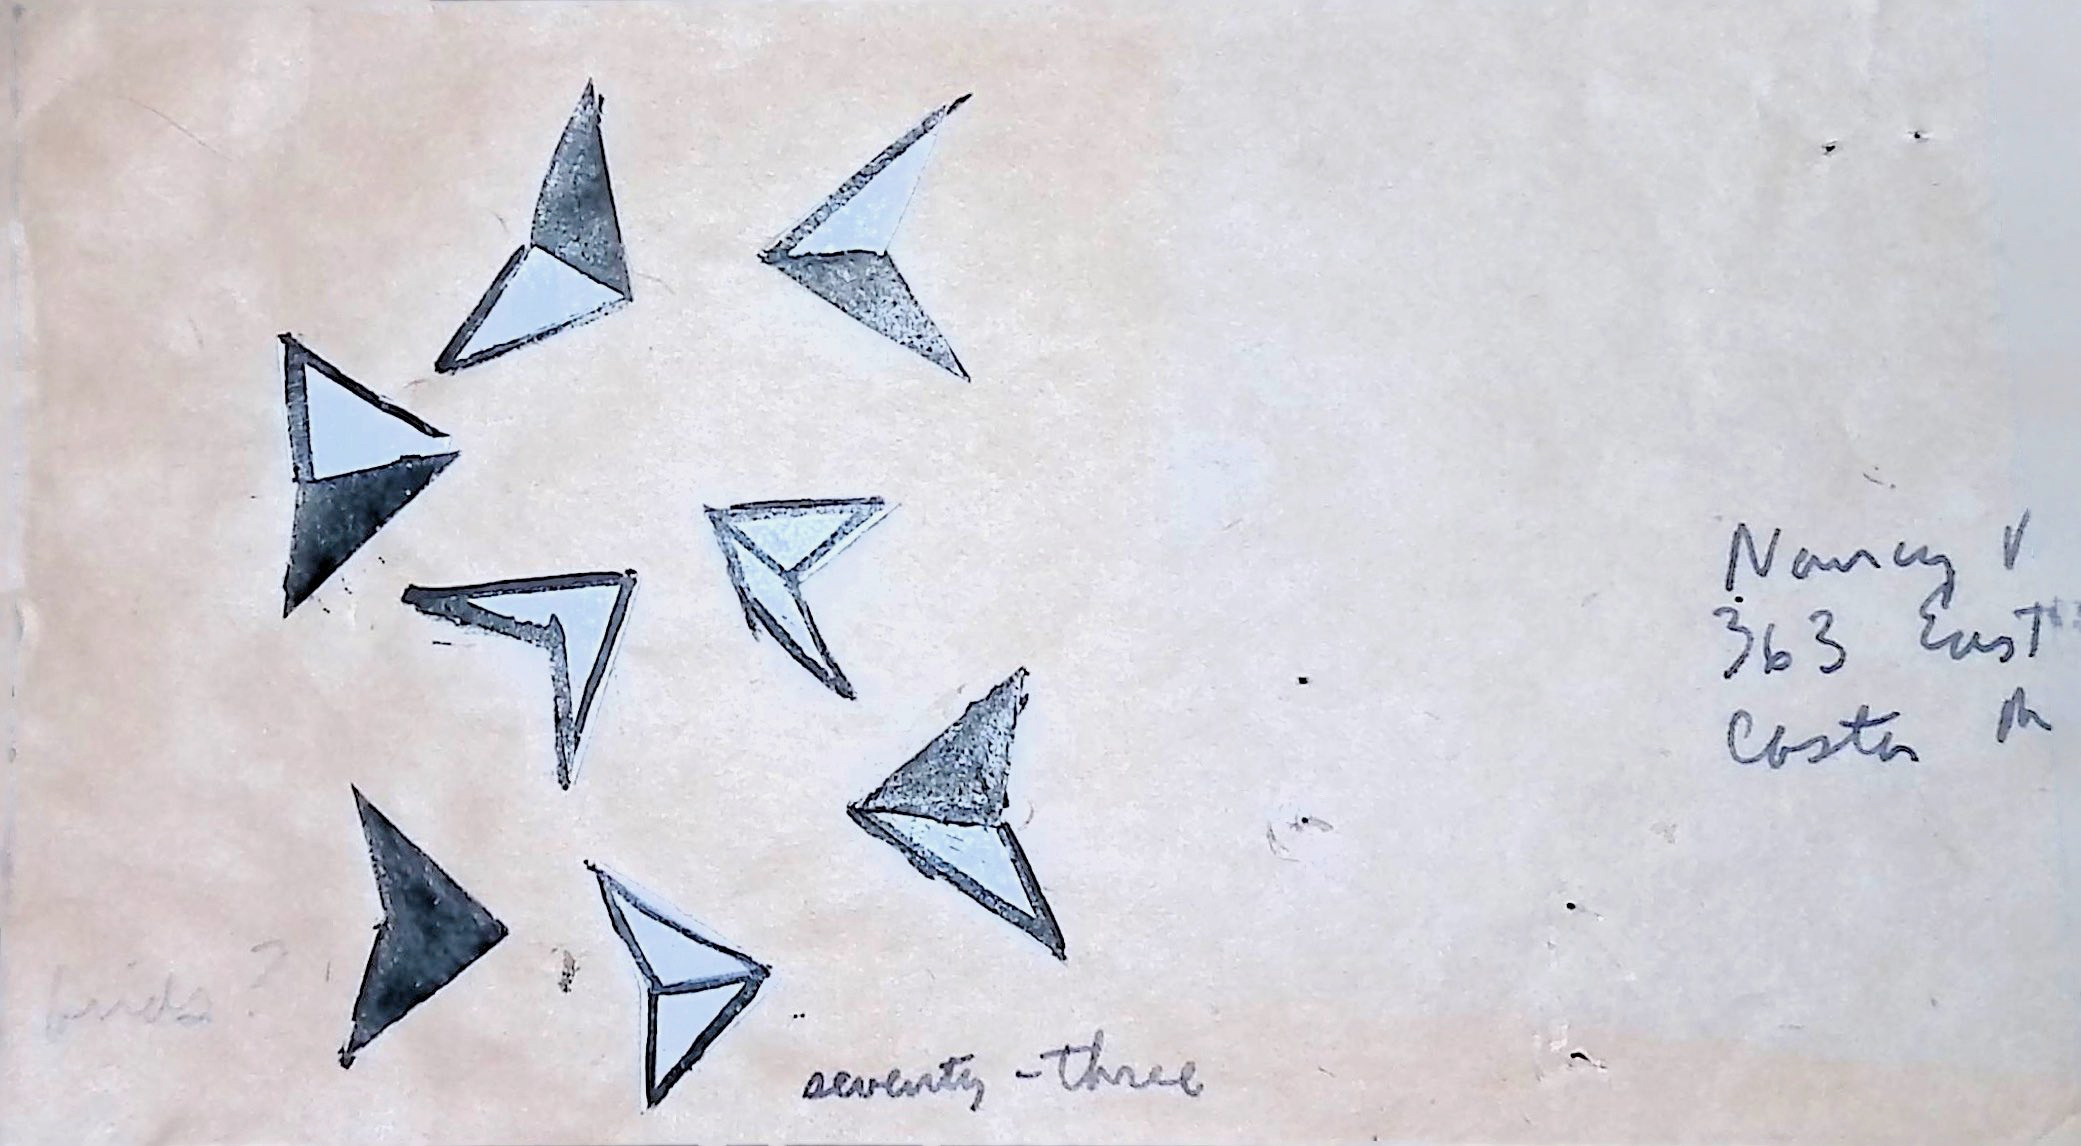 Nancy V
363 East
Costa M
birds?
seventy-three